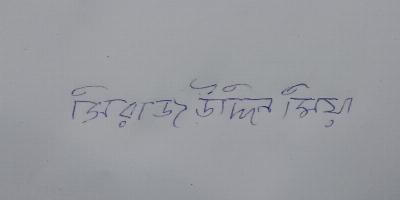 সিরাজ উদ্দিন মিয়া